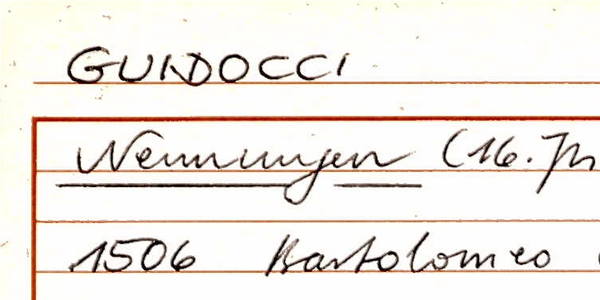 GUIDOCCI
Nennungen (16. Jh
1506 Bartolomeo